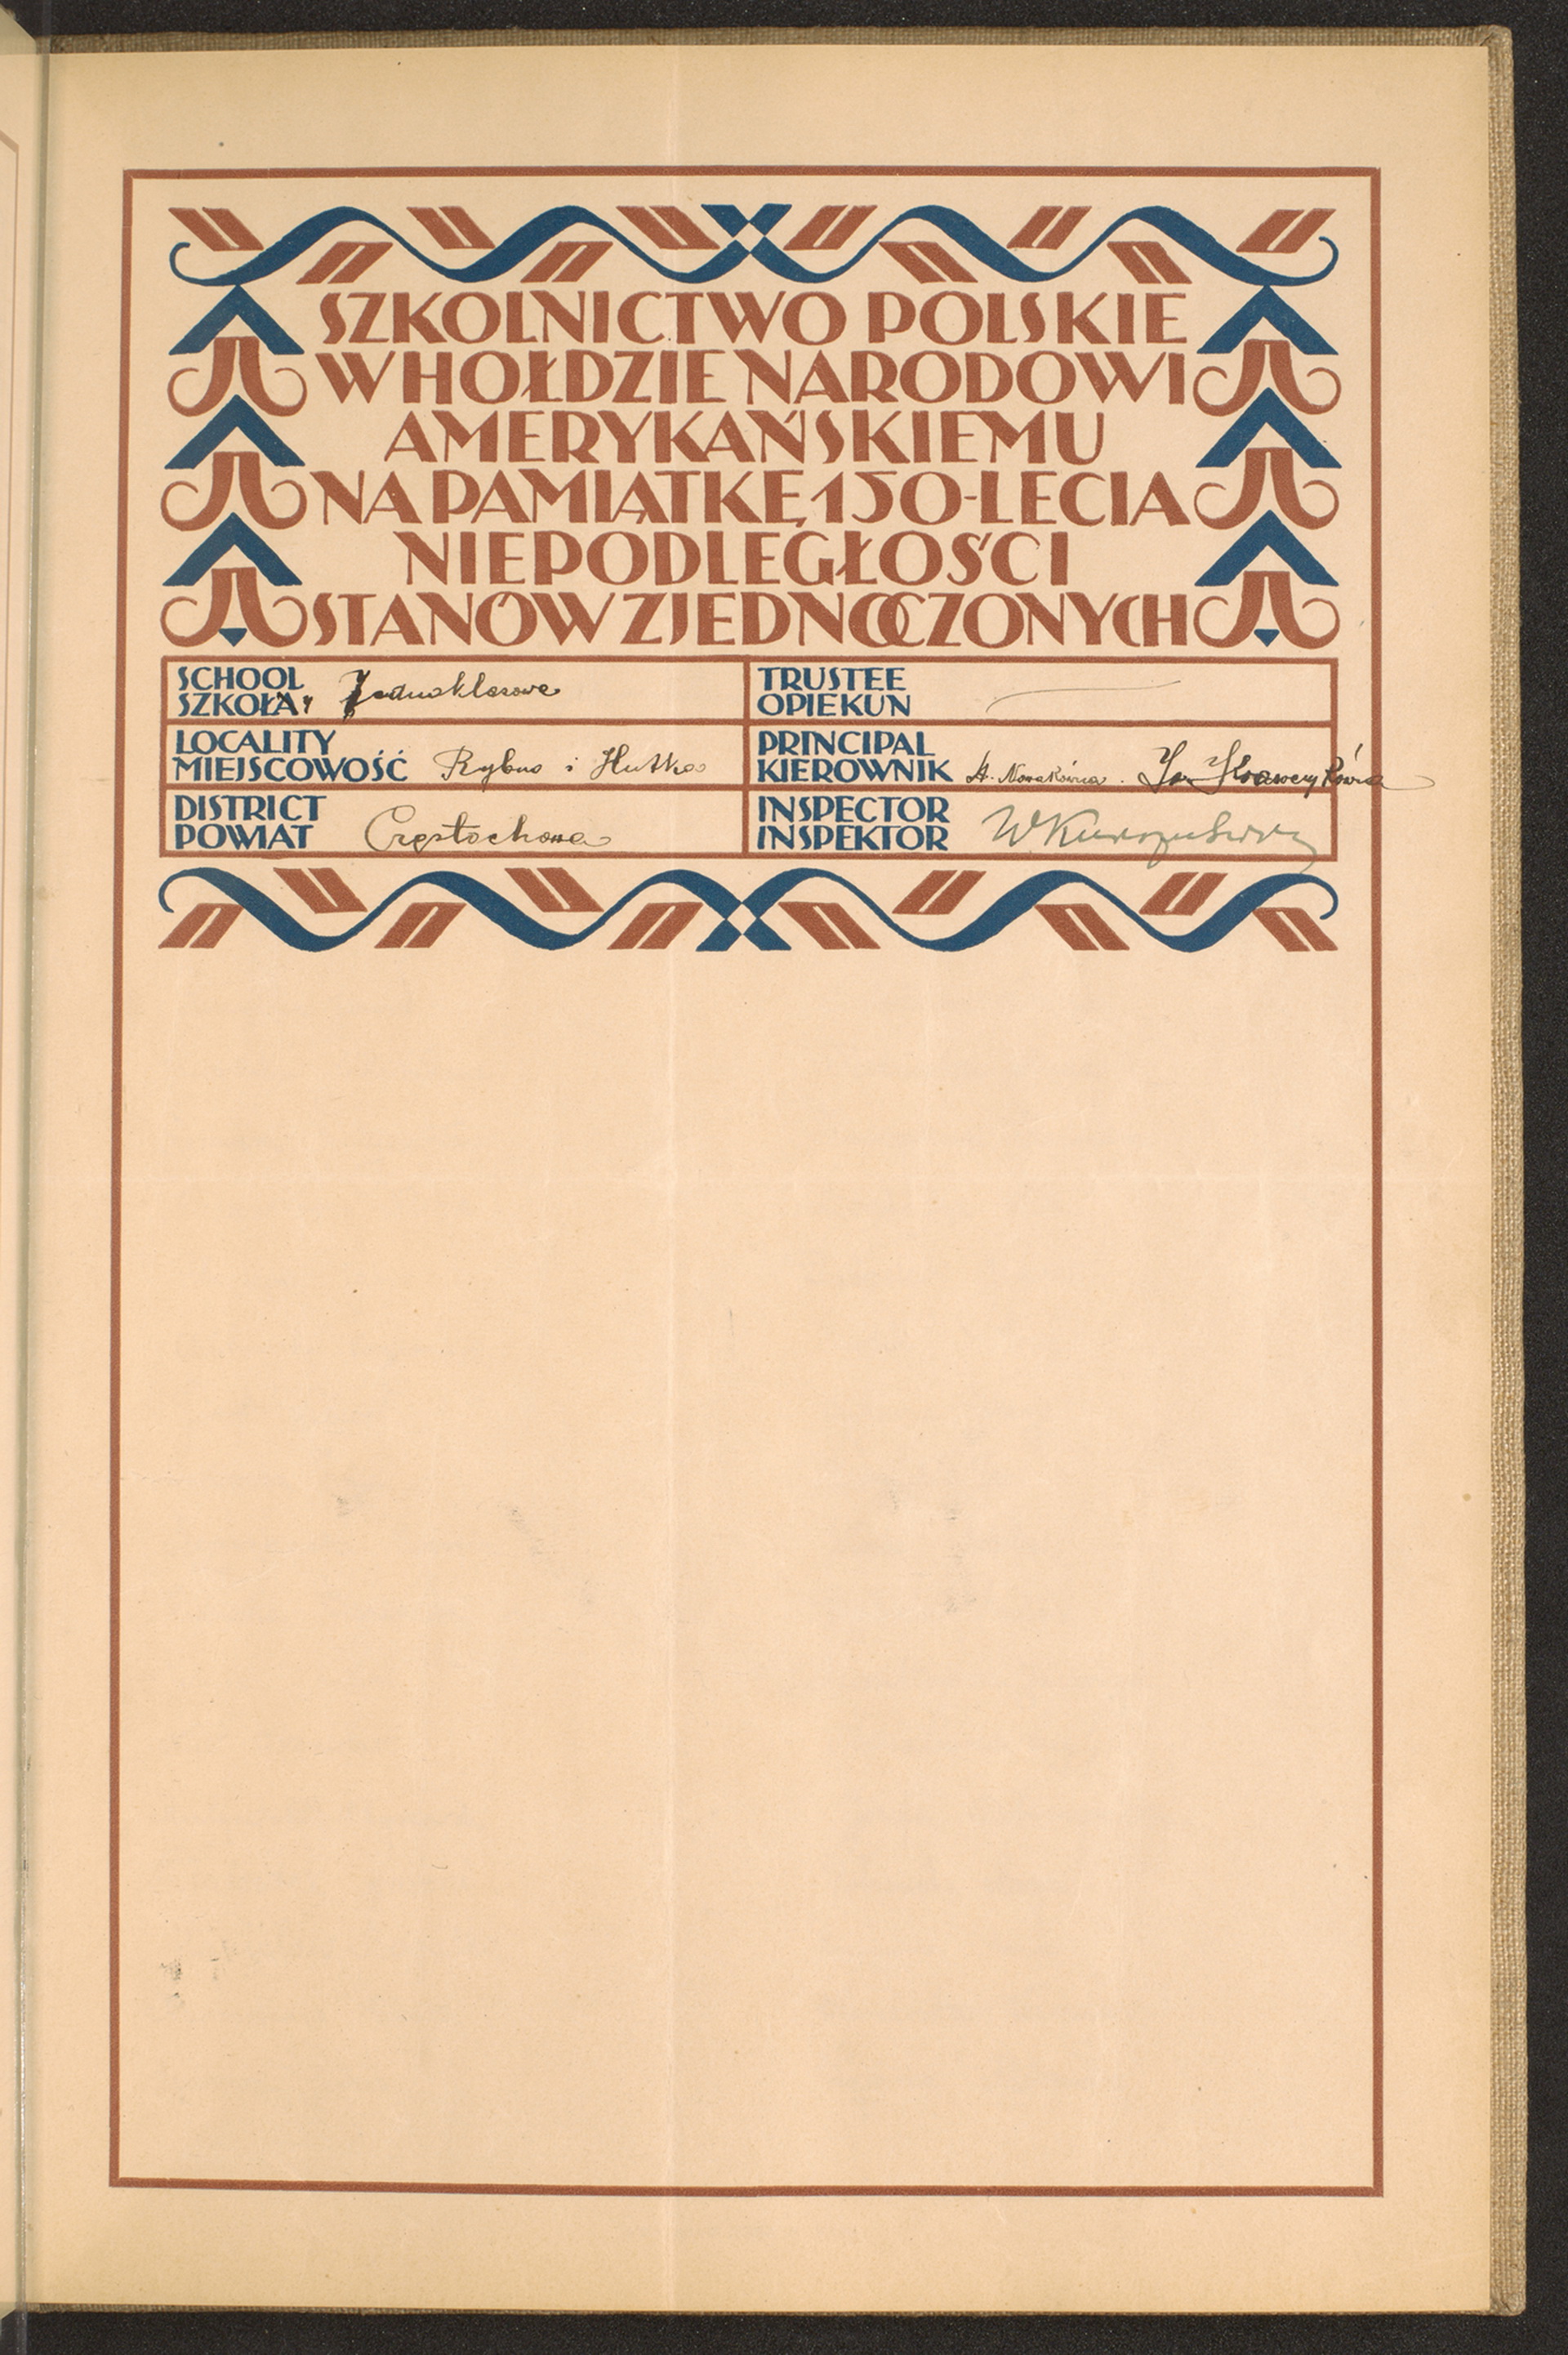 SZKOLNICTWO POLSKIE
W HOŁDZIE NARODOWI
AMERYKAŃSKIEMU
NA PAMIĄTKĘ 150-LECIA
NIEPODLEGŁOŚCI
STANÓW ZJEDNOCZONYCH
SCHOOL
SZKOŁA Jednoklasowe
LOCALITY
MIEJSCOWOŚĆ Rybno i Hutka
DISTRICT
POWIAT Częstochowa
TRUSTEE
OPIEKUN
PRINCIPAL
KIEROWNIK A. Nowakówna
INSPECTOR
INSPEKTOR